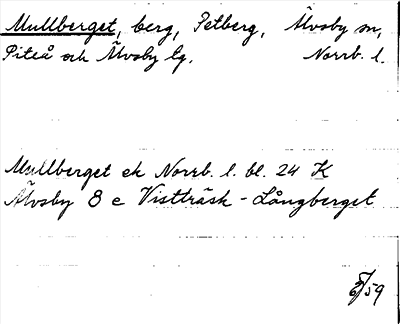 Mullberget, berg, Petberg, Älvsby sn,
Piteå och Älvsby tg. Norrb. l.
Mullberget ek Norrb. l. bl. 24 K
Älvsby 8 c Vistträsk - Långberget
/59